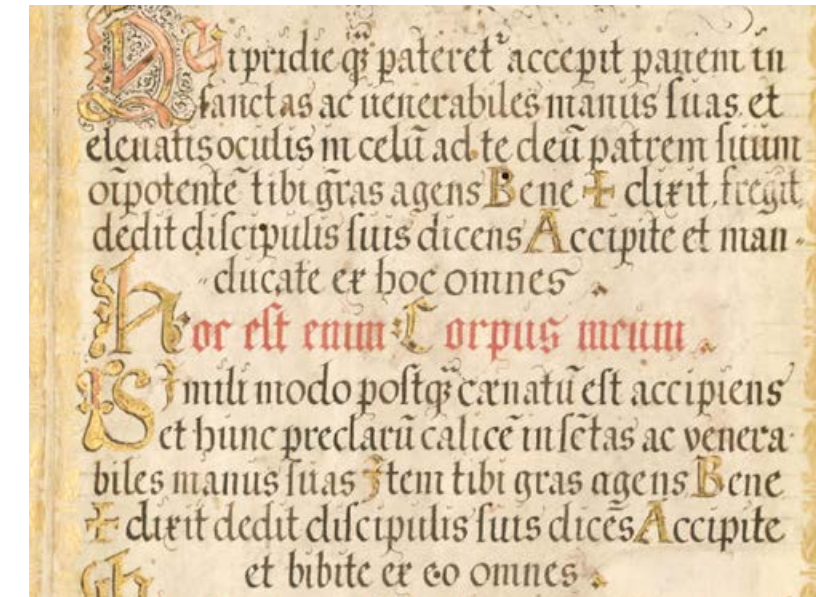 QUi pridie q̃ pateret᷑ accepit panem in
sanctas ac uenerabiles manus suas, et
eleuatis oculis in celũ ad te deũ patrem suum
oĩpotentẽ tibi grãs agens Bene ✠ dixit, fregit,
dedit discipulis suis dicens Accipite et man-
ducate ex hoc omnes.
Hoc est enim Corpus meum.
SImili modo postq̃ cænatũ est accipiens
et hunc preclarũ calicẽ in sc̃tas ac venera-
biles manus suas Item tibi gras agens Bene
✠ dixit dedit discipulis suis dicẽs Accipite
et bibite ex eo omnes.
H